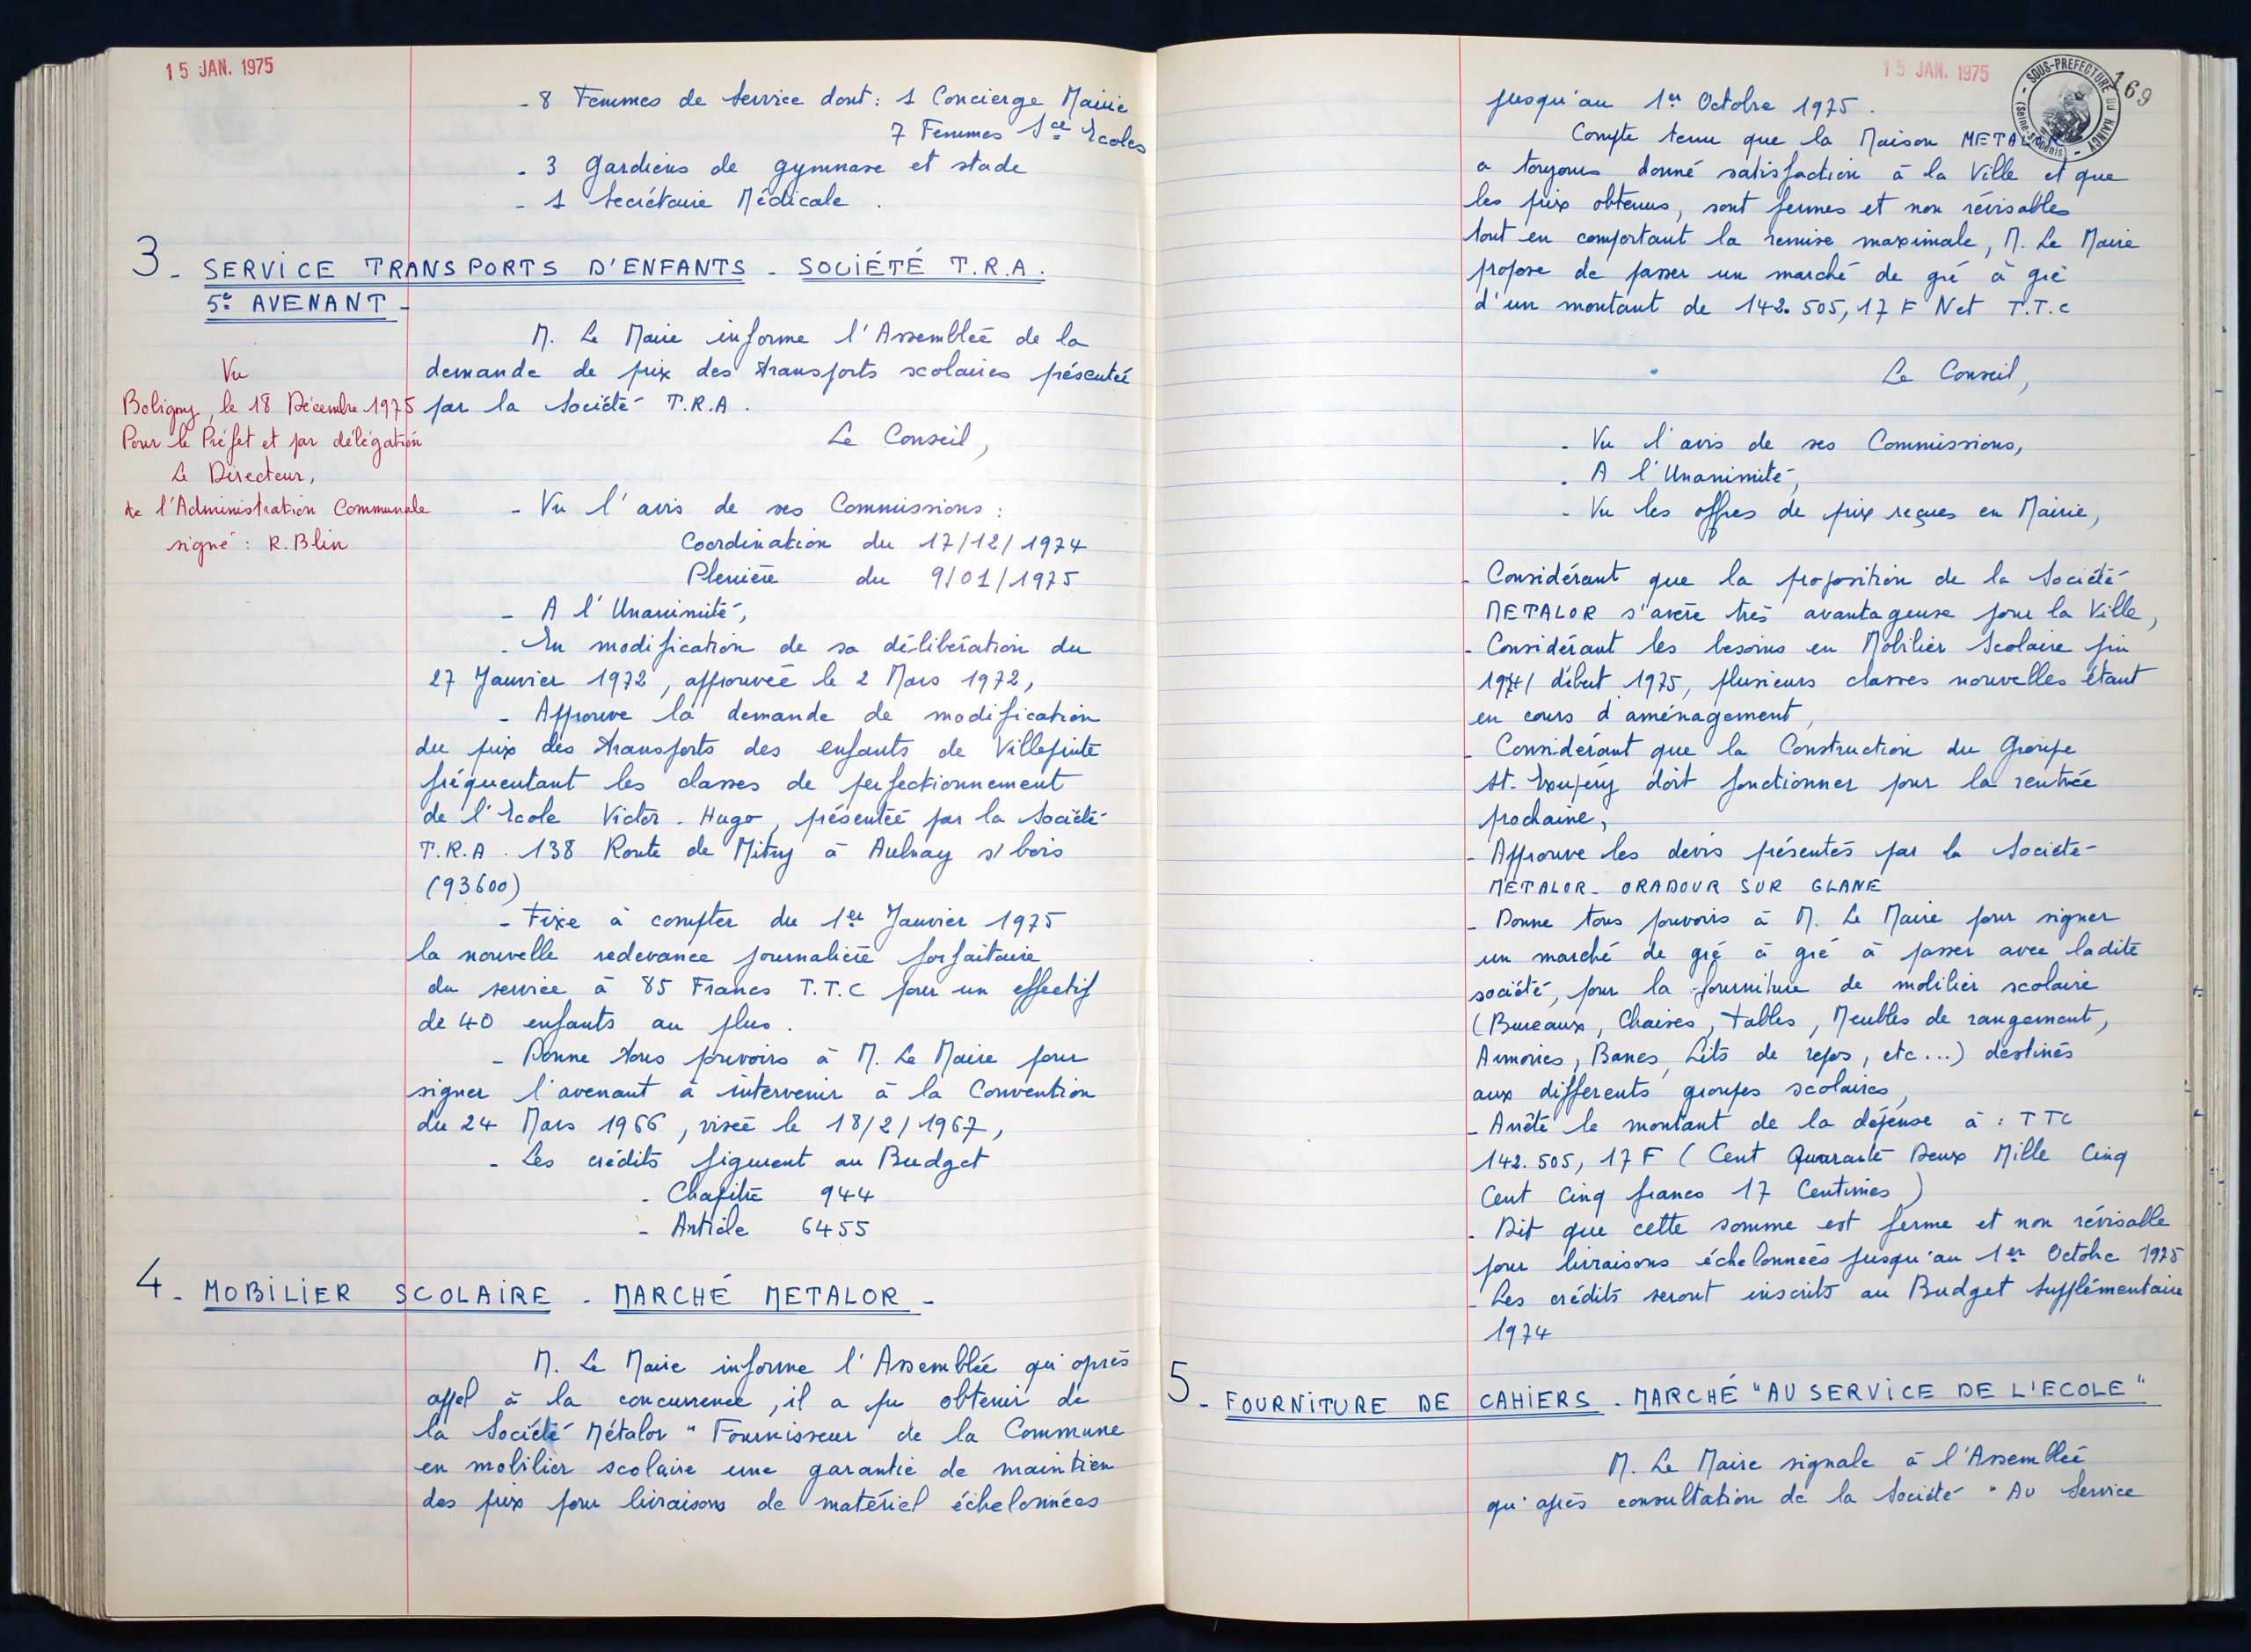 15 JAN. 1975
- 8 Femmes de Service dont : 1 Concierge Mairie
7 Femmes Sce Ecoles
- 3 Gardiens de gymnase et stade
- 1 Secrétaire Médicale .
3 - SERVICE TRANSPORTS D'ENFANTS - SOCIÉTÉ T.R.A.
5e AVENANT -
M. Le Maire informe l'Assemblée de la
demande de prix des transports scolaires présentée
par la Société T.R.A .
Vu
Bobigny, le 18 Décembre 1975
Pour le Préfet et par délégation
Le Directeur,
de l'Administration Communale
signé : R. Blin
Le Conseil,
- Vu l'avis de ses Commissions :
Coordination du 17/12/1974
Plenière du 9/01/1975
- A l'Unanimité,
- En modification de sa délibération du
27 Janvier 1972, approuvée le 2 Mars 1972,
- Approuve la demande de modification
du prix des transports des enfants de Villepinte
fréquentant les classes de perfectionnement
de l'Ecole Victor - Hugo, présentée par la Société
T.R.A . 138 Route de Mitry à Aulnay s/ bois
(93600)
- Fixe à compter du 1er Janvier 1975
la nouvelle redevance journalière forfaitaire
du service à 85 Francs T.T.C pour un effectif
de 40 enfants au plus .
- Donne tous pouvoirs à M. Le Maire pour
signer l'avenant à intervenir à la Convention
du 24 Mars 1966, visée le 18/2/1967,
- Les crédits figurent au Budget
- Chapitre 944
- Article 6455
4 - MOBILIER SCOLAIRE - MARCHÉ METALOR -
M. Le Maire informe l'Assemblée qu'après
appel à la concurrence, il a pu obtenir de
la Société Métalor " Fournisseur de la Commune
en mobilier scolaire une garantie de maintien
des prix pour livraisons de matériel échelonnées
15 JAN. 1975
SOUS-PREFECTURE DU RAINCY - (Seine-St-Denis) -
169
jusqu'au 1er Octobre 1975 .
Compte tenu que la Maison METALOR
a toujours donné satisfaction à la Ville et que
les prix obtenus, sont fermes et non révisables
tout en comportant la remise maximale, M. Le Maire
propose de passer un marché de gré à gré
d'un montant de 142.505,17 F Net T.T.C
Le Conseil,
- Vu l'avis de ses Commissions,
- A l'Unanimité,
- Vu les offres de prix reçues en Mairie,
- Considérant que la proposition de la Société
METALOR s'avère très avantageuse pour la Ville,
- Considérant les besoins en Mobilier Scolaire fin
1974/ début 1975, plusieurs classes nouvelles étant
en cours d'aménagement,
- Considérant que la Construction du Groupe
St. Exupéry doit fonctionner pour la rentrée
prochaine,
- Approuve les devis présentés par la Société
METALOR - ORADOUR SUR GLANE
- Donne tous pouvoirs à M. Le Maire pour signer
un marché de gré à gré à passer avec ladite
société, pour la fourniture de mobilier scolaire
(Bureaux, Chaises, tables, Meubles de rangement,
Armoires, Bancs, Lits de repos, etc...) destinés
aux differents groupes scolaires,
- Arrête le montant de la dépense à : TTC
142.505,17 F ( Cent Quarante Deux Mille Cinq
Cent Cinq francs 17 Centimes )
- Dit que cette somme est ferme et non révisable
pour livraisons échelonnées jusqu'au 1er Octobre 1975
- Les crédits seront inscrits au Budget supplémentaire
1974
5 - FOURNITURE DE CAHIERS - MARCHÉ "AU SERVICE DE L'ECOLE"
M. Le Maire signale à l'Assemblée
qu'après consultation de la Société " Au Service